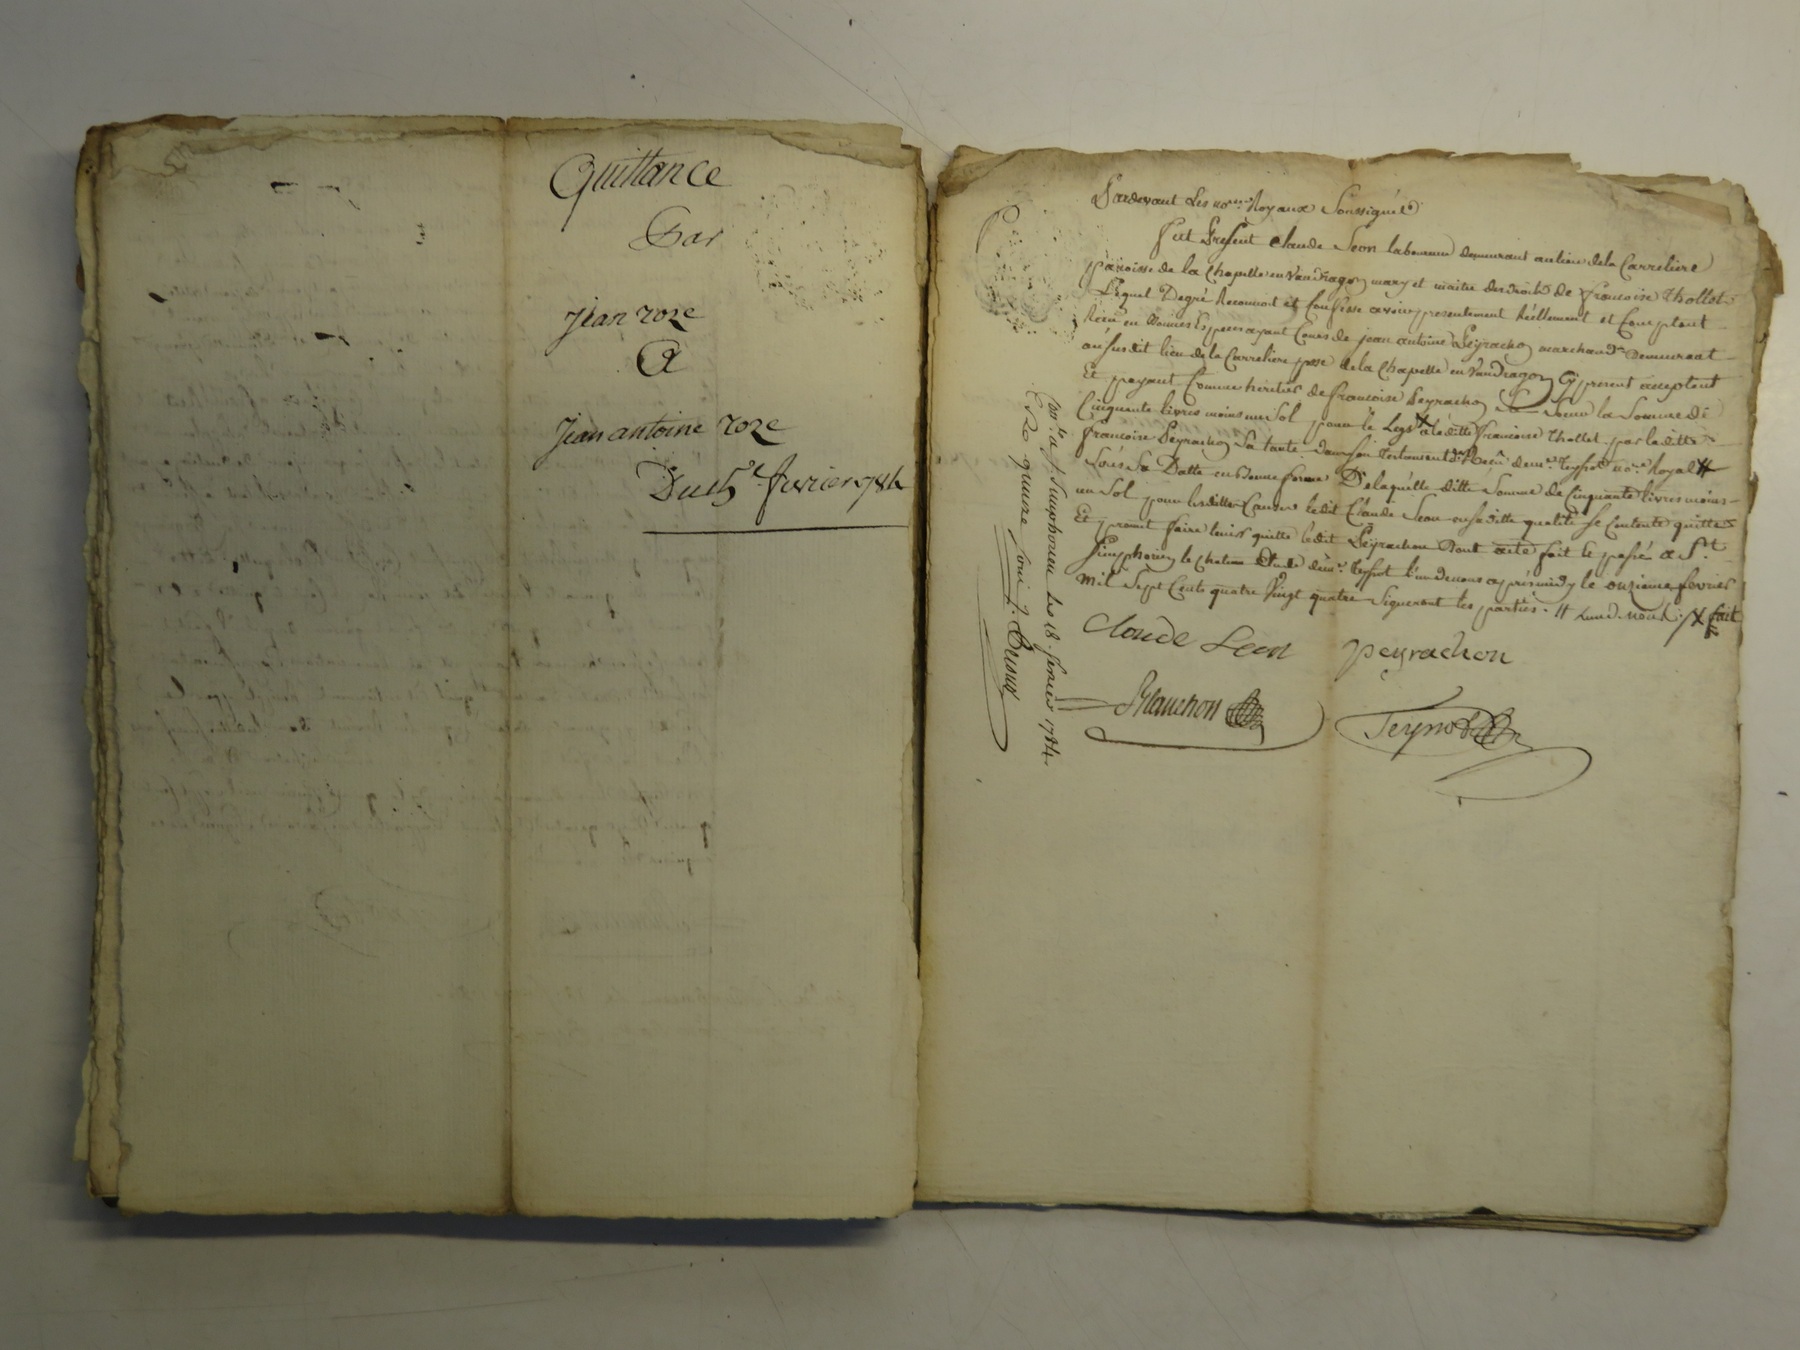 Quittance
Par
jean roze
A
jean antoine roze
Du 5e. fevrier 1784
Pardevant Les nores. Royaux Soussignés
fut Present Claude Seon laboureur demeurant au lieu de la Carreliere
paroisse de la Chapelle en Vaudragon mary et maitre des droits de francoise thollot
Lequel De gré Reconnoit et Confesse avoir presentement Réellement et Comptant
Recu en bonnes Especes ayant Cours de jean antoine Peyrachon marchand Demeurant
au susdit lieu de la Carreliere psse de la Chapelle en Vaudragon Cy present acceptant
Et payant Comme heritier de francoise Peyrachon Sa Soeur la Somme de
Cinquante livres moins un Sol pour le Legs X a la ditte francoise thollot par la ditte
francoise Peyrachon Sa tante dans son testament Recu de me. Teyssot nore. Royal #
Sous Sa Datte en bonne forme De laquelle ditte Somme de Cinquante livres moins
un Sol pour lesdittes Causes ledit Claude Seon en sa ditte qualité Se Contente quitte
Et promet faire tenir quitte ledit Peyrachon Dont acte fait et passé a St.
Simphorien le Chateau Etude de me. Teyssot l'un de nous aprés midy le onzieme fevrier
Mil Sept Cents quatre Vingt quatre Signeront les parties. # l'un d. nous. / X fait
Claude Seon
peyrachon
Blanchon
Teyssot
Con.lé a St. Simphorien les 18. fevrier 1784.
R. quinze sous